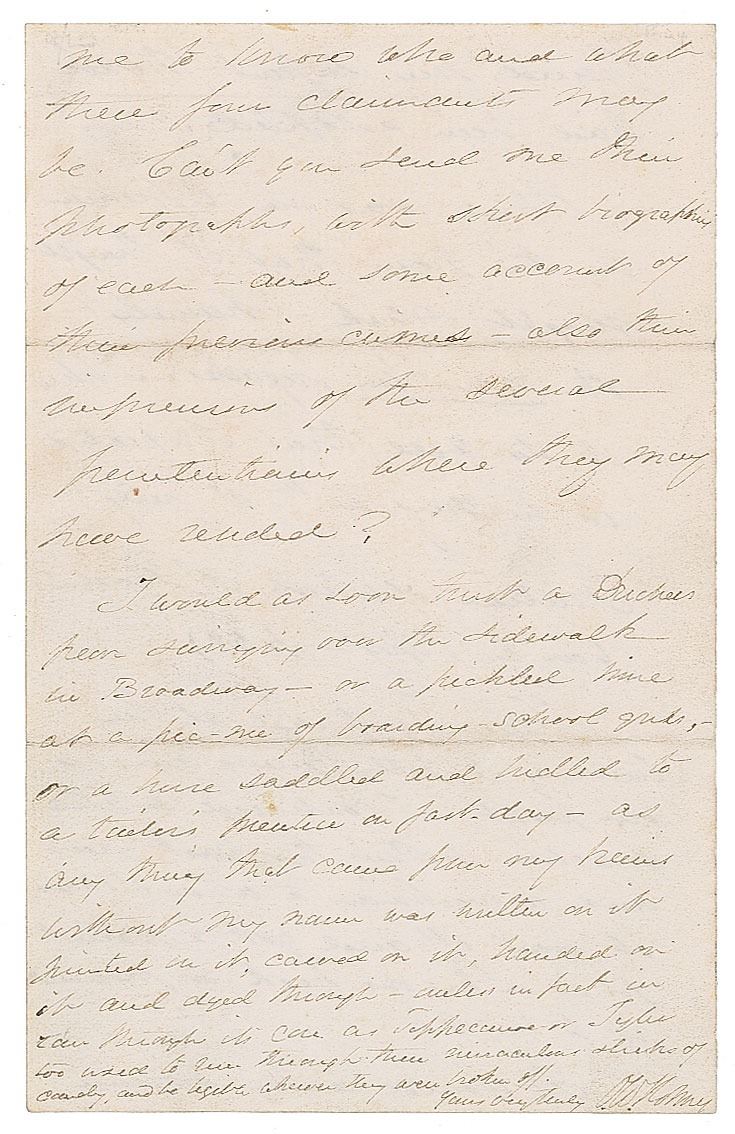 me to know who and what
these four claimants may
be. Can't you send me their
photographs, with short biographies
of each – and some account of
their previous crimes – also their
impressions of the several
penitentiaries where they may
have resided?
I would as soon trust a Duchess
pear swinging over the sidewalk
in Broadway – or a pickled lime
at a pic-nic of boarding-school girls, –
or a horse saddled and bridled to
a tailor's prentice on fast-day – as
any thing that came from my brains
without my name was written on it
printed in it, carved on it, branded on
it and dyed through – unless in fact it
ran through its core as Tippecanoe or Tyler
too used to run through those miraculous sticks of
candy, and be legible wherever they were broken off.
Yours very truly O W Holmes